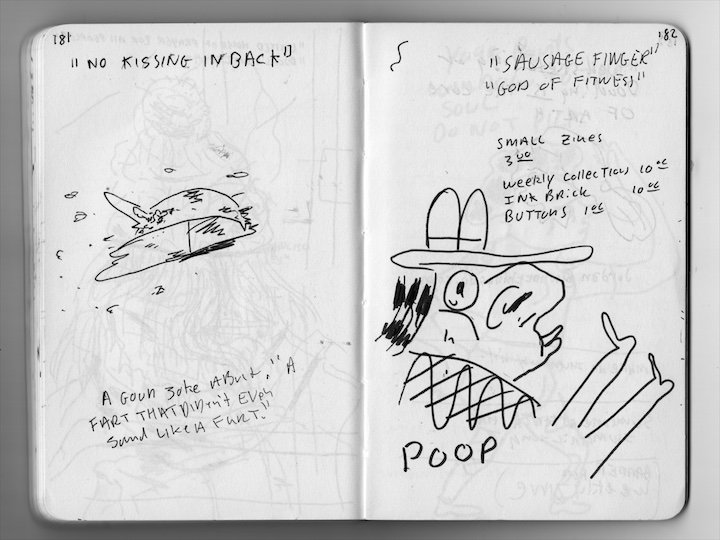 181
"NO KISSING IN BACK"
A GOOD JOKE ABOUT. "A
FART THAT DIDn't EVEn
Sound LIKE A FART."
182
"SAUSAGE FINGER"
"GOD OF FITNESS"
SMALL ZINES
3 00
WEEKLY COLLECTIONS 10 00
INK BRICK 10 00
BUTTONS 1 00
POOP